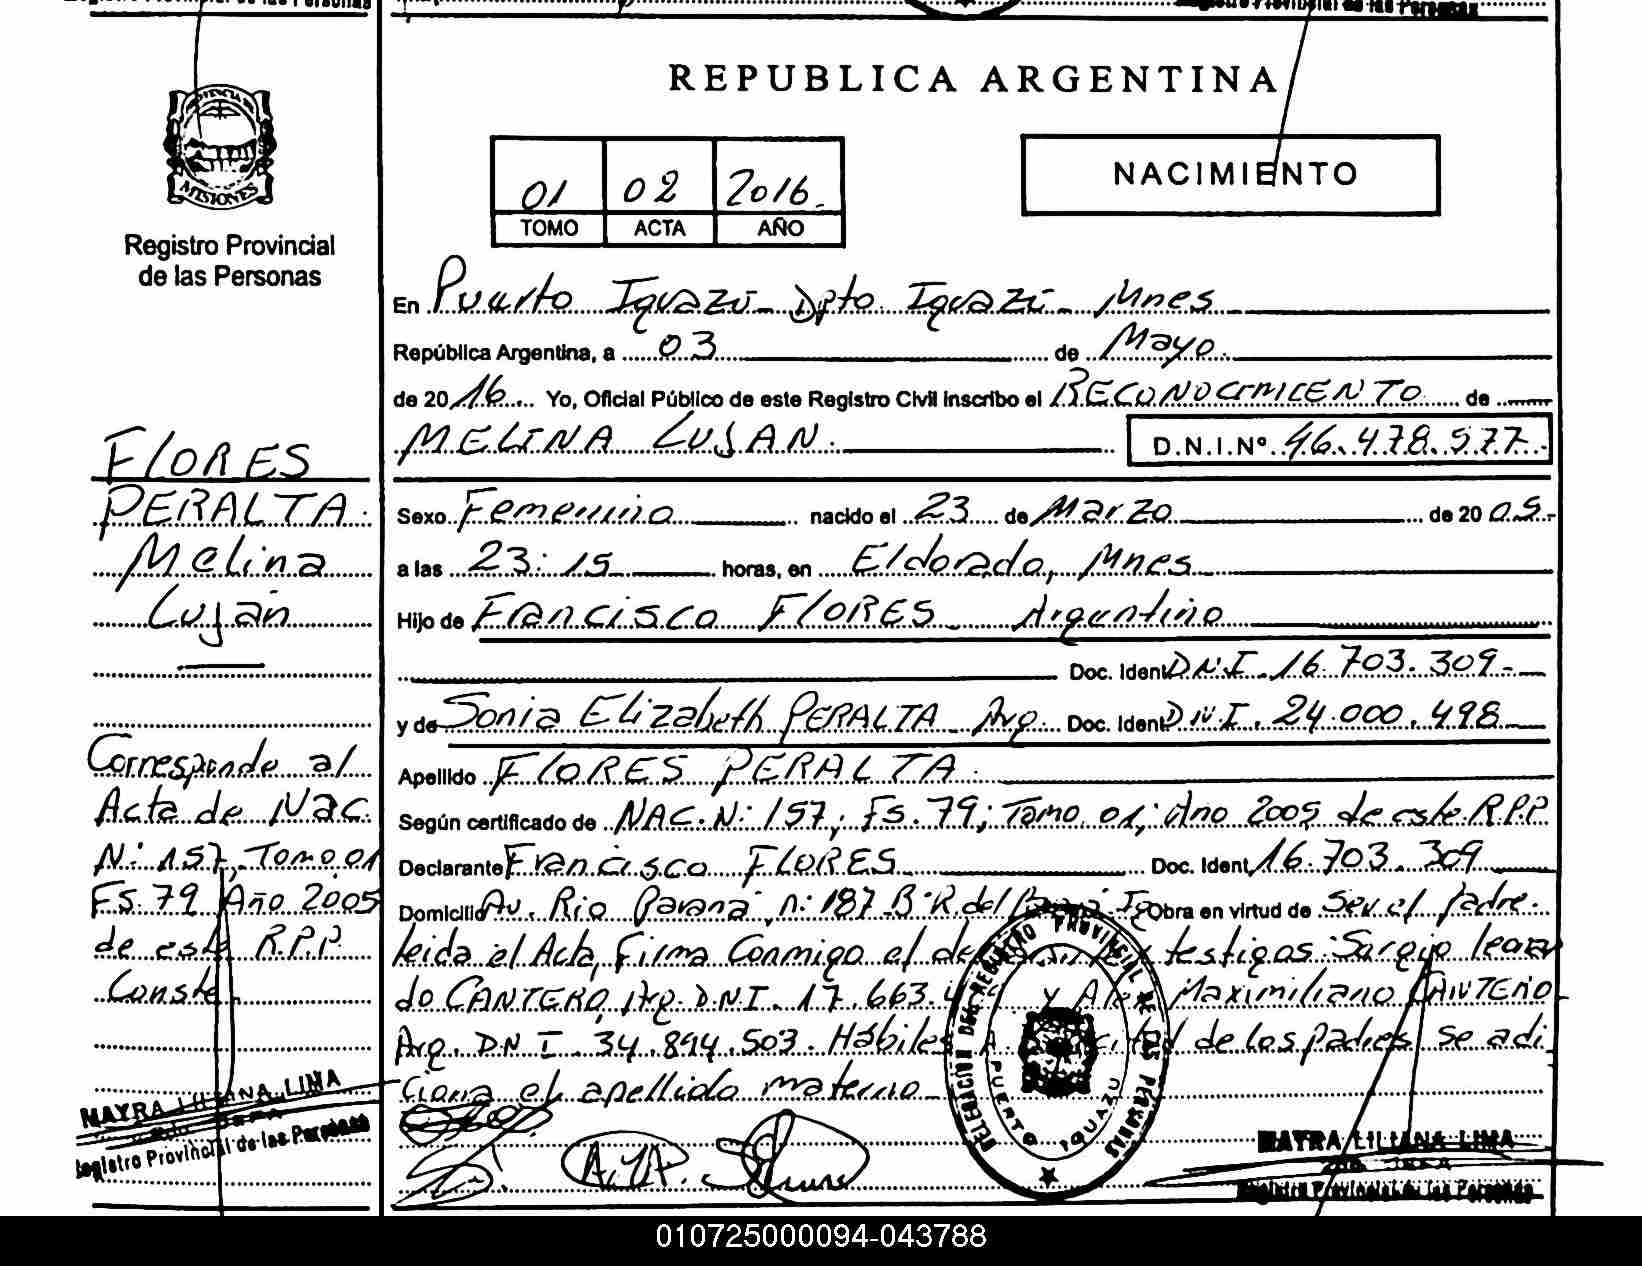 REPUBLICA ARGENTINA
PROVINCIA DE
MISIONES
Registro Provincial
de las Personas
01 02 2016
TOMO ACTA AÑO
NACIMIENTO
En Puerto Iguazú - Dpto. Iguazú - Mnes
República Argentina, a 03 de Mayo
de 2016 Yo, Oficial Público de este Registro Civil inscribo el RECONOCIMIENTO de
MELINA LUJAN. D.N.I.Nº 46.478.577.-
Sexo Femenino nacido el 23 de Marzo de 2005.-
a las 23:15 horas, en Eldorado, Mnes
Hijo de Francisco FLORES - Argentino
Doc. Ident. D.N.I. 16.703.309.-
y de Sonia Elizabeth PERALTA Arg. Doc. Ident. D.N.I. 24.000.498
Apellido FLORES PERALTA.
Según certificado de NAC. N: 157, Fs. 79; Tomo 01; Año 2005 de este R.P.P
Declarante Francisco FLORES Doc. Ident. 16.703.309
Domicilio Av. Rio Parana n: 187 B: R. del Obra en virtud de Ser el padre.
leida el Acta, Firma Conmigo el testigos: Sergio lean
do CANTERO, Arg. D.N.I. 17.663. y Maximiliano CANTERO
Arg. D.N.I. 34.894.503. Hábiles de los padres se adi
ciona el apellido materno
FLORES
PERALTA.
Melina
Luján
Corresponde al
Acta de Nac.
N: 157, Tomo 01
Fs. 79 Año 2005
de este R.P.P.
Conste.
MAYRA LILIANA LIMA
JEFA
Registro Provincial de las Personas
DELEGACION DEL REGISTRO PROVINCIAL DE LAS PERSONAS
PUERTO IGUAZU
MAYRA LILIANA LIMA
JEFA
Registro Provincial de las Personas
010725000094-043788